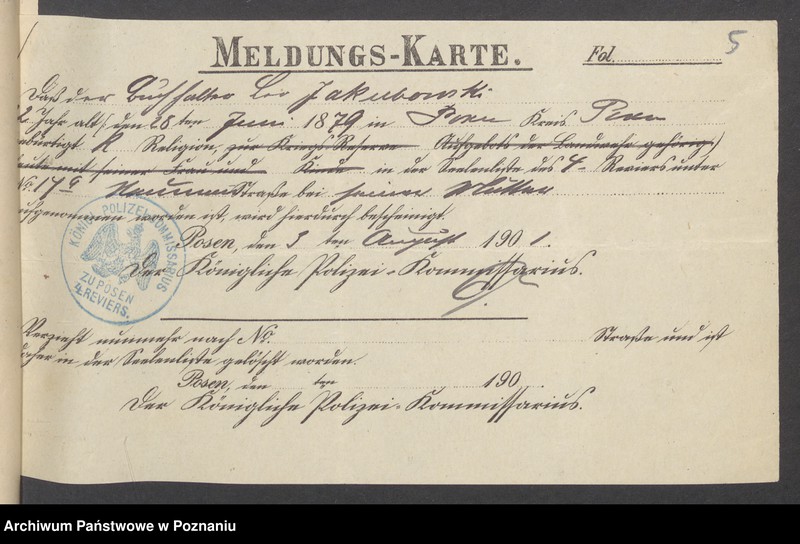 MELDUNGS-KARTE.
Fol. 5
Daß der Buchhalter Leo Jakubowski
2 Jahr alt, den 28 ten Juni 1879 in Posen Kreis Posen
gebürtigt K Religion, zur Kriegs-Reserve Aufgebots der Landwehr gehörig,
heute mit seiner Frau und Kinde in der Seelenliste des 4 Reviers unter
No. 17a Straße bei seiner Mutter
aufgenommen worden ist, wird hierdurch bescheinigt.
Posen, den 3 ten August 1901.
Der Königliche Polizei-Kommissarius.
KÖNIGL. POLIZEI-COMMISSARIUS
ZU POSEN
4. REVIERS.
Verzieht nunmehr nach No. Straße und ist
daher in der Seelenliste gelöscht worden.
Posen, den ten 190
Der Königliche Polizei-Kommissarius.
Archiwum Państwowe w Poznaniu